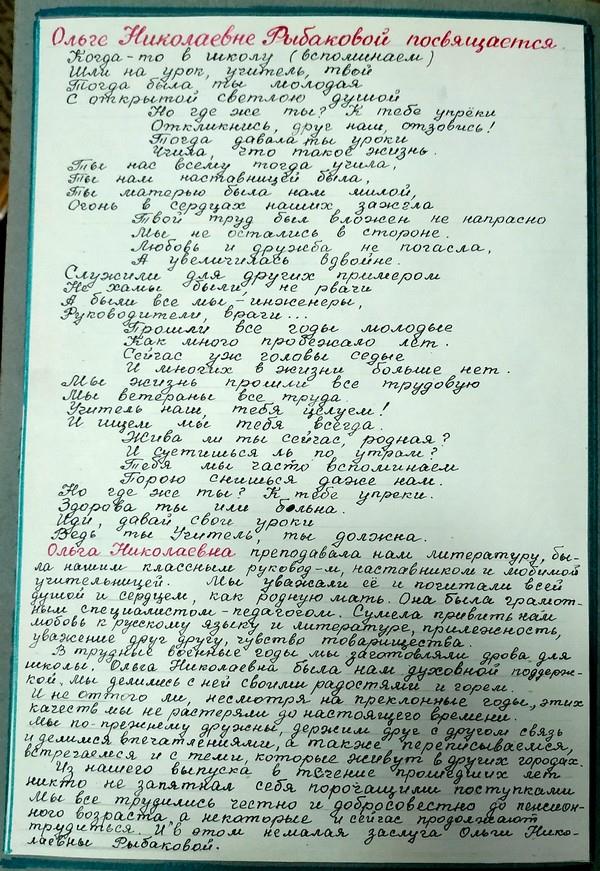 Ольге Николаевне Рыбаковой посвящается
Когда-то в школу (вспоминаем)
Шли на урок, учитель, твой
Тогда была ты молодая
С открытой светлою душой
Но где же ты? К тебе упрёки
Откликнись, друг наш, отзовись!
Тогда давала ты уроки
Учила, что такое жизнь.
Ты нас всему тогда учила,
Ты нам наставницей была,
Ты матерью была нам милой,
Огонь в сердцах наших зажгла
Твой труд был вложен не напрасно
Мы не остались в стороне.
Любовь и дружба не погасла,
А увеличилась вдвойне.
Служили для других примером
Не хамы были, не рвачи
А были все мы - инженеры,
Руководители, врачи...
Прошли все годы молодые
Как много пробежало лет.
Сейчас уж головы седые
И многих в жизни больше нет.
Мы жизнь прошли все трудовую
Мы ветераны все труда.
Учитель наш, тебя целуем!
И ищем мы тебя всегда.
Жива ли ты сейчас, родная?
И суетишься ль по утрам?
Тебя мы часто вспоминаем
Порою снишься даже нам.
Но где же ты? К тебе упреки.
Здорова ты или больна.
Иди, давай свои уроки
Ведь ты Учитель, ты должна.
Ольга Николаевна преподавала нам литературу, бы-
ла нашим классным руковод-м, наставником и любимой
учительницей. Мы уважали её и почитали всей
душой и сердцем, как родную мать. Она была грамот-
ным специалистом-педагогом. Сумела привить нам
любовь к русскому языку и литературе, прилежность,
уважение друг другу, чувство товарищества.
В трудные военные годы мы заготовляли дрова для
школы. Ольга Николаевна была нам духовной поддерж-
кой. Мы делились с ней своими радостями и горем.
И не оттого ли, несмотря на преклонные годы, этих
качеств мы не растеряли до настоящего времени.
Мы по-прежнему дружны, держим друг с другом связь
и делимся впечатлениями, а также переписываемся,
встречаемся и с теми, которые живут в других городах.
Из нашего выпуска в течение прошедших лет
никто не запятнал себя порочащими поступками
Мы все трудились честно и добросовестно до пенсион-
ного возраста, а некоторые и сейчас продолжают
трудиться. И в этом немалая заслуга Ольги Нико-
лаевны Рыбаковой.